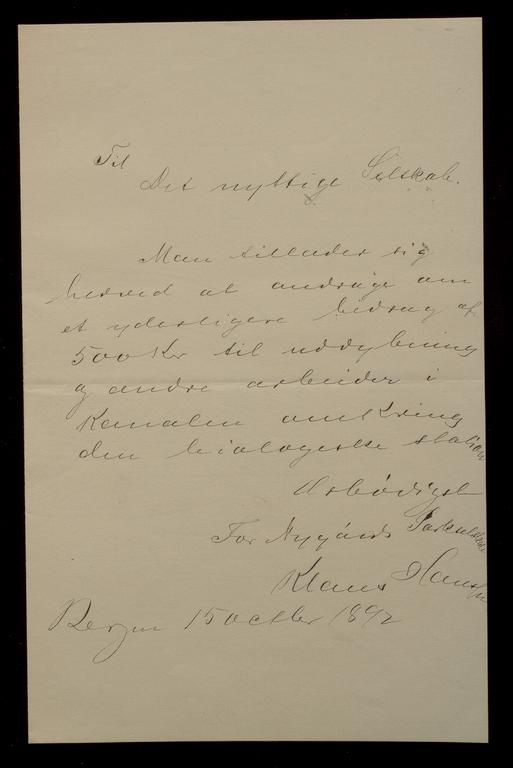 Til
Det nyttige Selskab.
Man tillader sig
herved at andrage om
et yderligere bidrag af
500 Kr til uddybning
og andre arbeider i
Kanalen omkring
den biologiske station
Ærbødigst
For Nygårds Parkselskab
Klaus Hanssen
Bergen 15 octber 1892